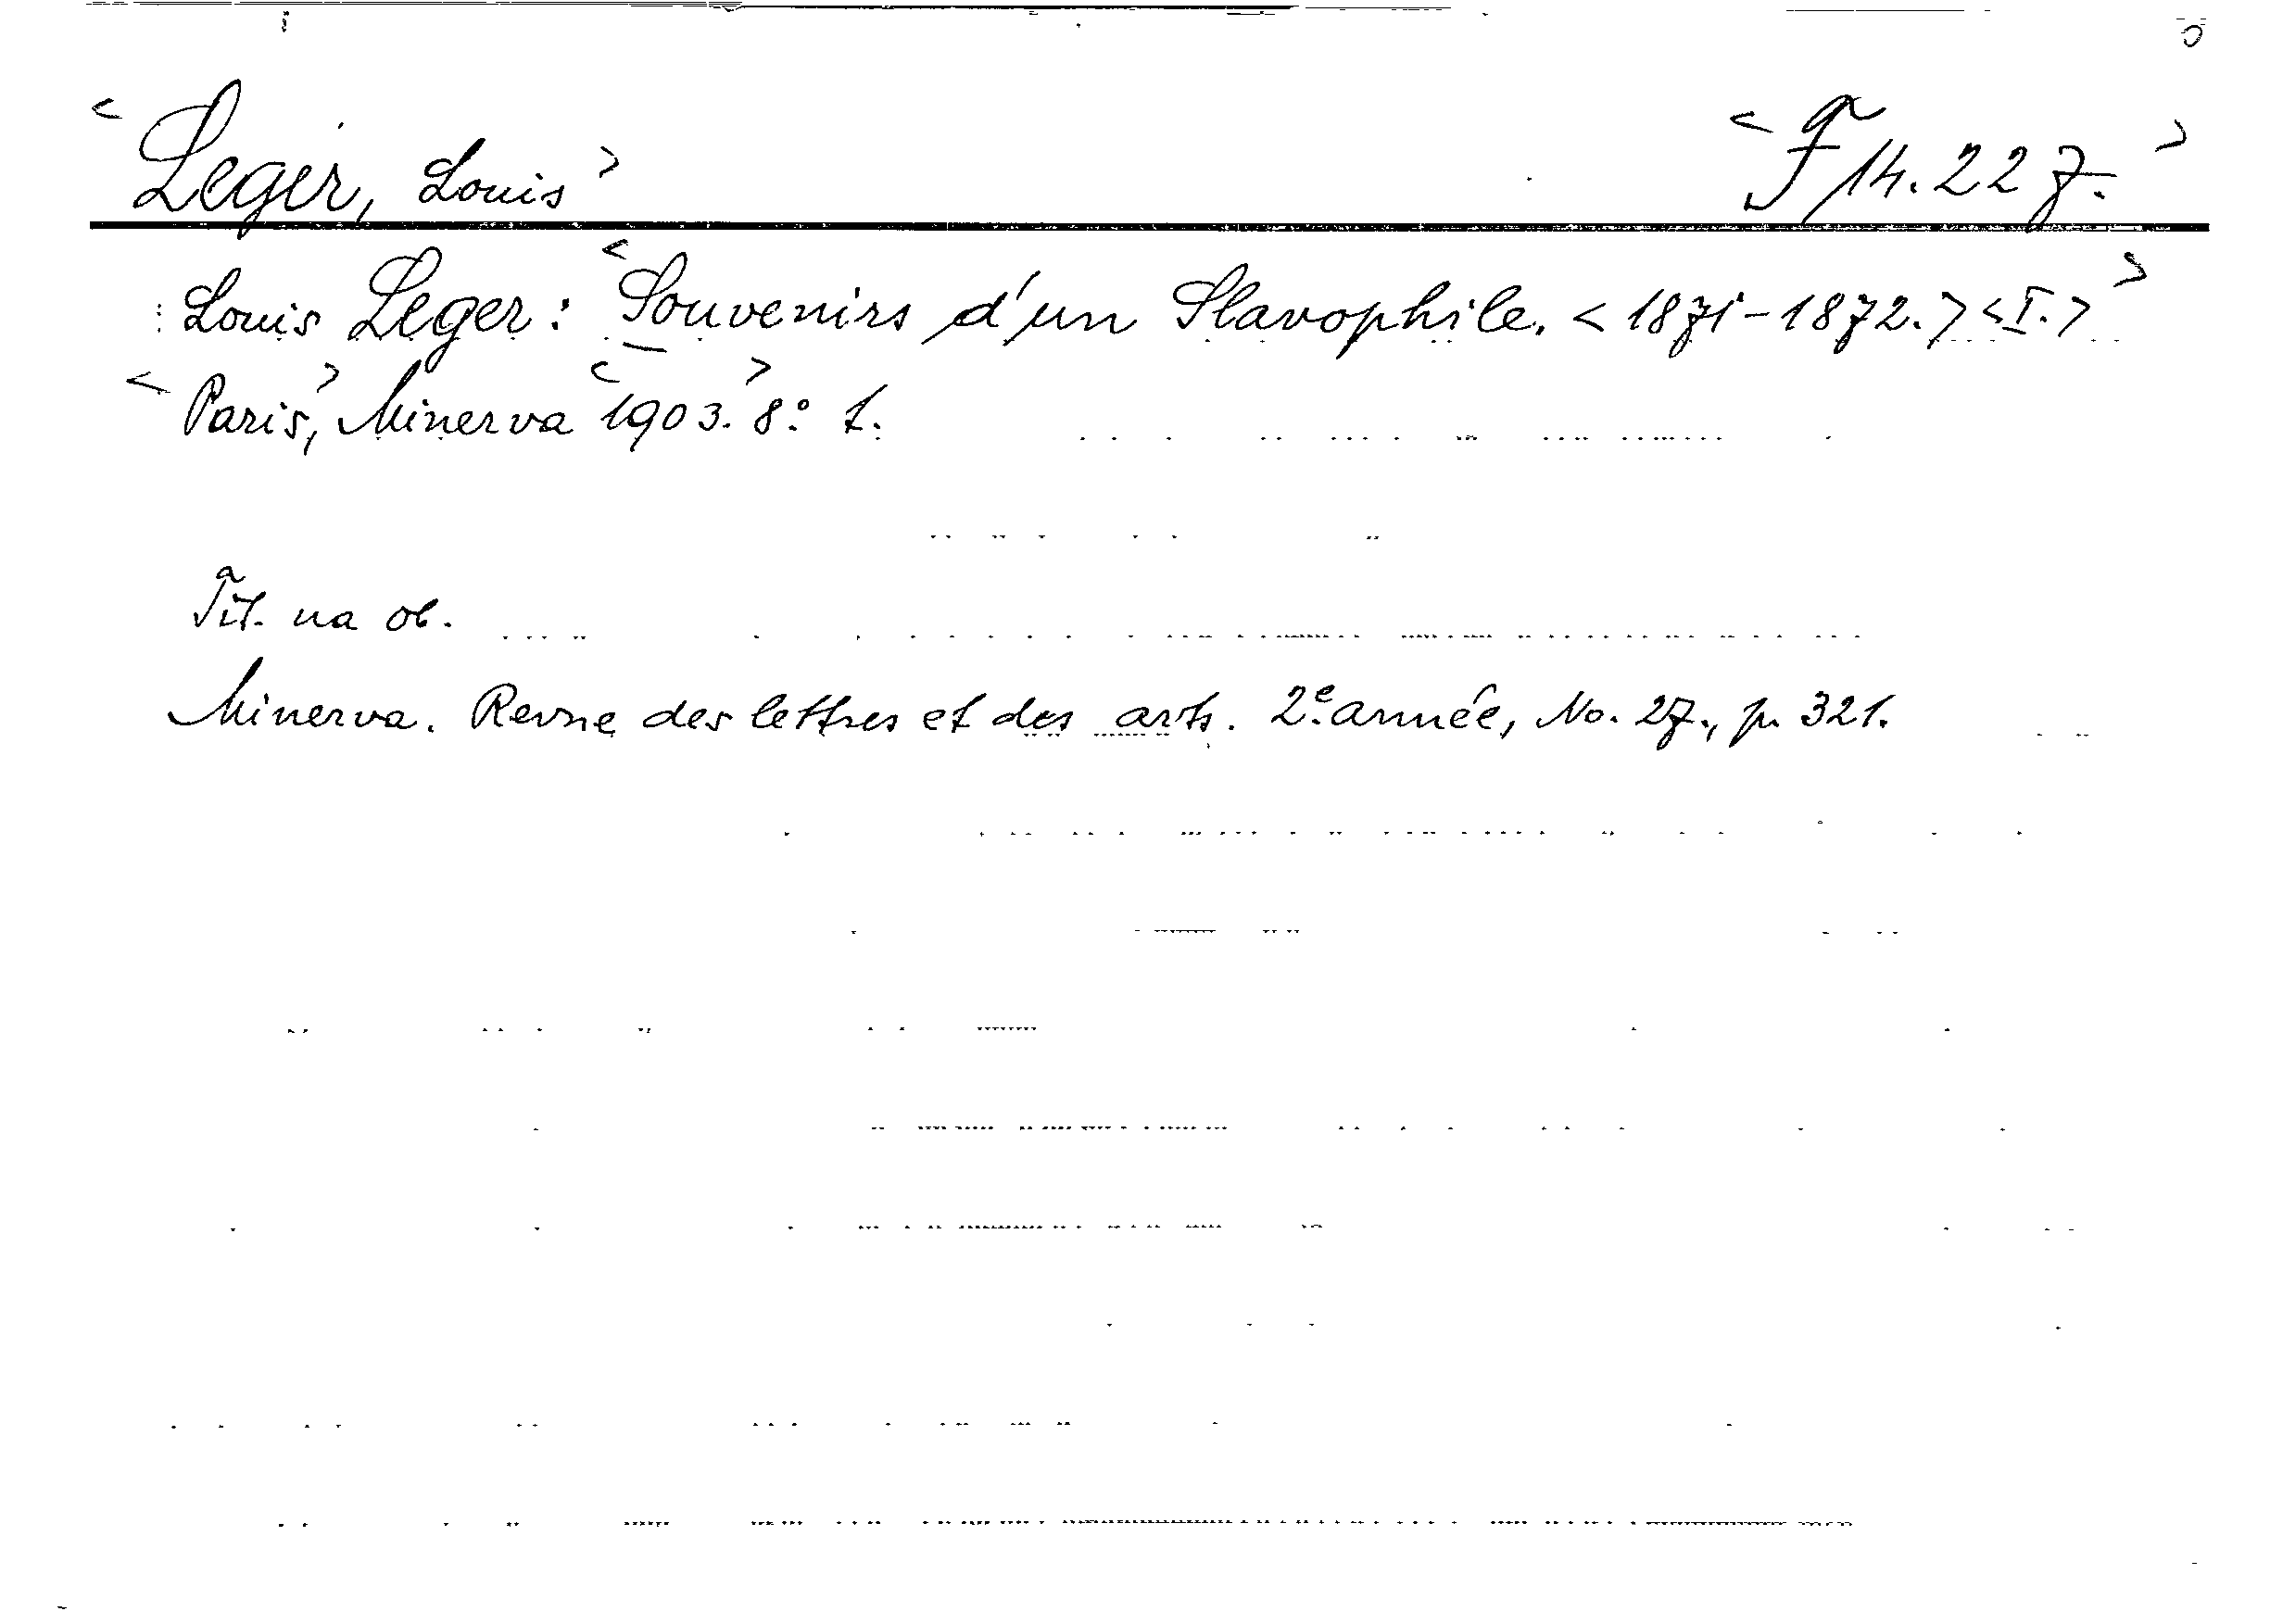 <Leger, Louis> <F 14.227.>
Louis Leger: <Souvenirs d'un Slavophile. <1871-1872.> <I.>>
<Paris,> Minerva <1903.> 8° 1.
Tit. na ob.
Minerva. Revue des lettres et des arts. 2e année, No. 27., p. 321.